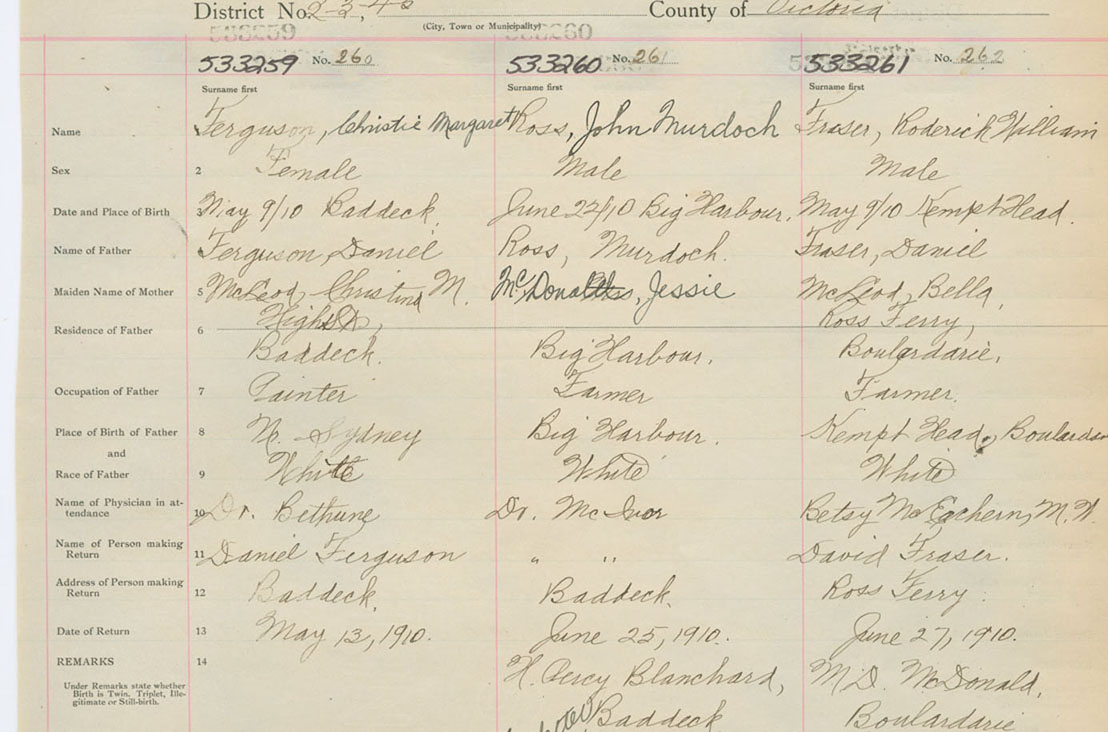 District No. 2-3, 4 County of Victoria
(City, Town or Municipality)
533259 No. 260 533260 No. 261 533261 No. 262
Surname first Surname first Surname first
Name Ferguson, Christie Margaret Ross, John Murdoch Fraser, Roderick William
Sex 2 Female Male Male
Date and Place of Birth 3 May 9/10 Baddeck. June 22/10 Big Harbour. May 9/10 Kempt Head.
Name of Father 4 Ferguson, Daniel Ross, Murdoch. Fraser, Daniel
Maiden Name of Mother 5 McLeod, Christina M. Jessie McLeod, Bella
Residence of Father 6 High St, Ross Ferry,
Baddeck. Big Harbour. Boulardarie.
Occupation of Father 7 Painter Farmer Farmer.
Place of Birth of Father 8 N. Sydney Big Harbour. Kempt Head,
and
Race of Father 9 White White White
Name of Physician in at-
tendance 10 Dr. Bethune Dr. McIvor Betsy McEachern, M.W.
Name of Person making
Return 11 Daniel Ferguson " " David Fraser.
Address of Person making
Return 12 Baddeck. Baddeck. Ross Ferry.
Date of Return 13 May 13, 1910. June 25, 1910. June 27, 1910.
REMARKS 14 H. Percy Blanchard, M.D. McDonald,
Under Remarks state whether
Birth is Twin, Triplet, Ille-
gitimate or Still-birth.
Baddeck Boulardarie